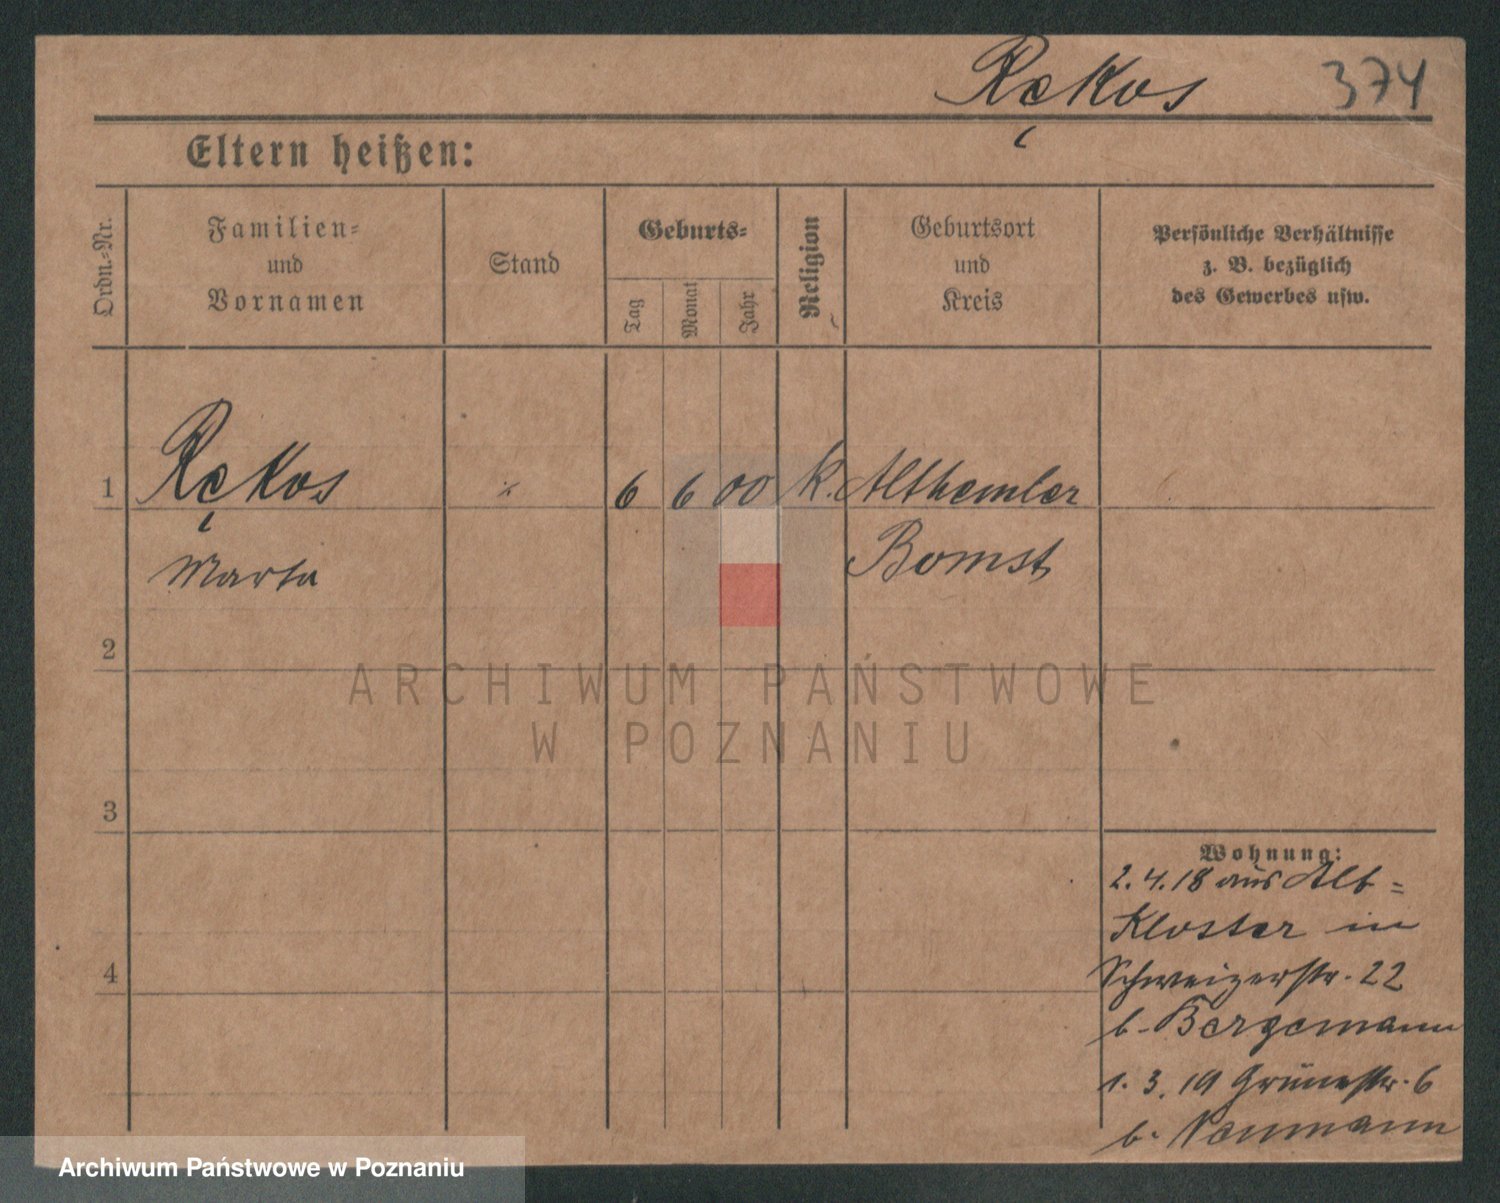 Rękos 374
Eltern heißen:
Ordn.-Nr.
Familien-
und
Vornamen
Stand
Geburts-
Tag
Monat
Jahr
Religion
Geburtsort
und
Kreis
Persönliche Verhältnisse
z. B. bezüglich
des Gewerbes usw.
1 Rękos 6 6 00 k. Althemler
Marta Bomst
2
3
4
Wohnung:
2.4.18 aus Alt-
Kloster in
Schweizerstr. 22
b. Bergemann
1.3.19 Grünestr. 6
b. Neumann
ARCHIWUM PAŃSTWOWE
W POZNANIU
Archiwum Państwowe w Poznaniu